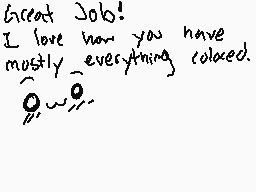 Great Job!
I love how you have
mostly everything colored.